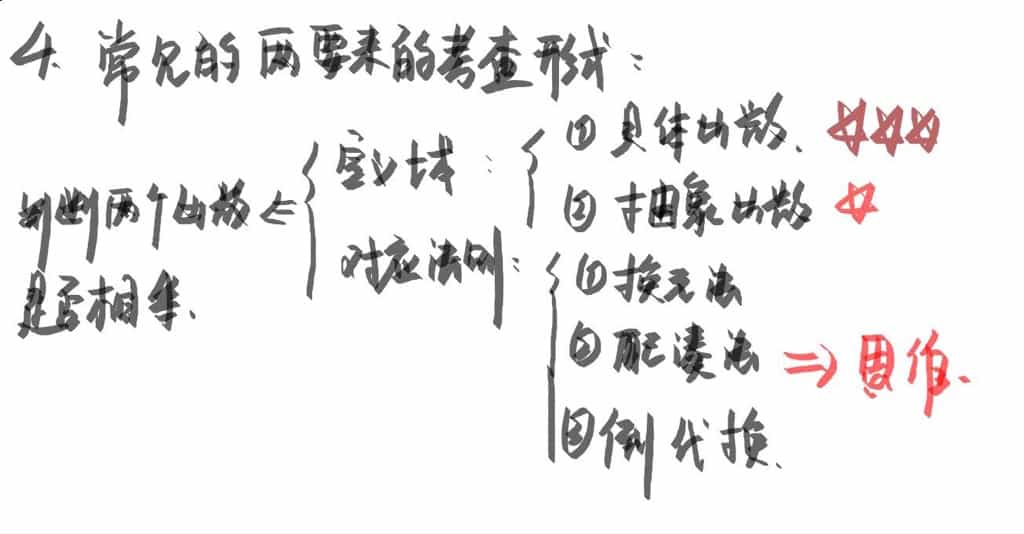 4. 常见的两要素的考查形式:
判断两个函数
是否相等.
定义域:
① 具体函数. ☆☆☆
② 抽象函数 ☆
对应法则:
① 换元法
② 配凑法 ⇒
③ 倒代换.